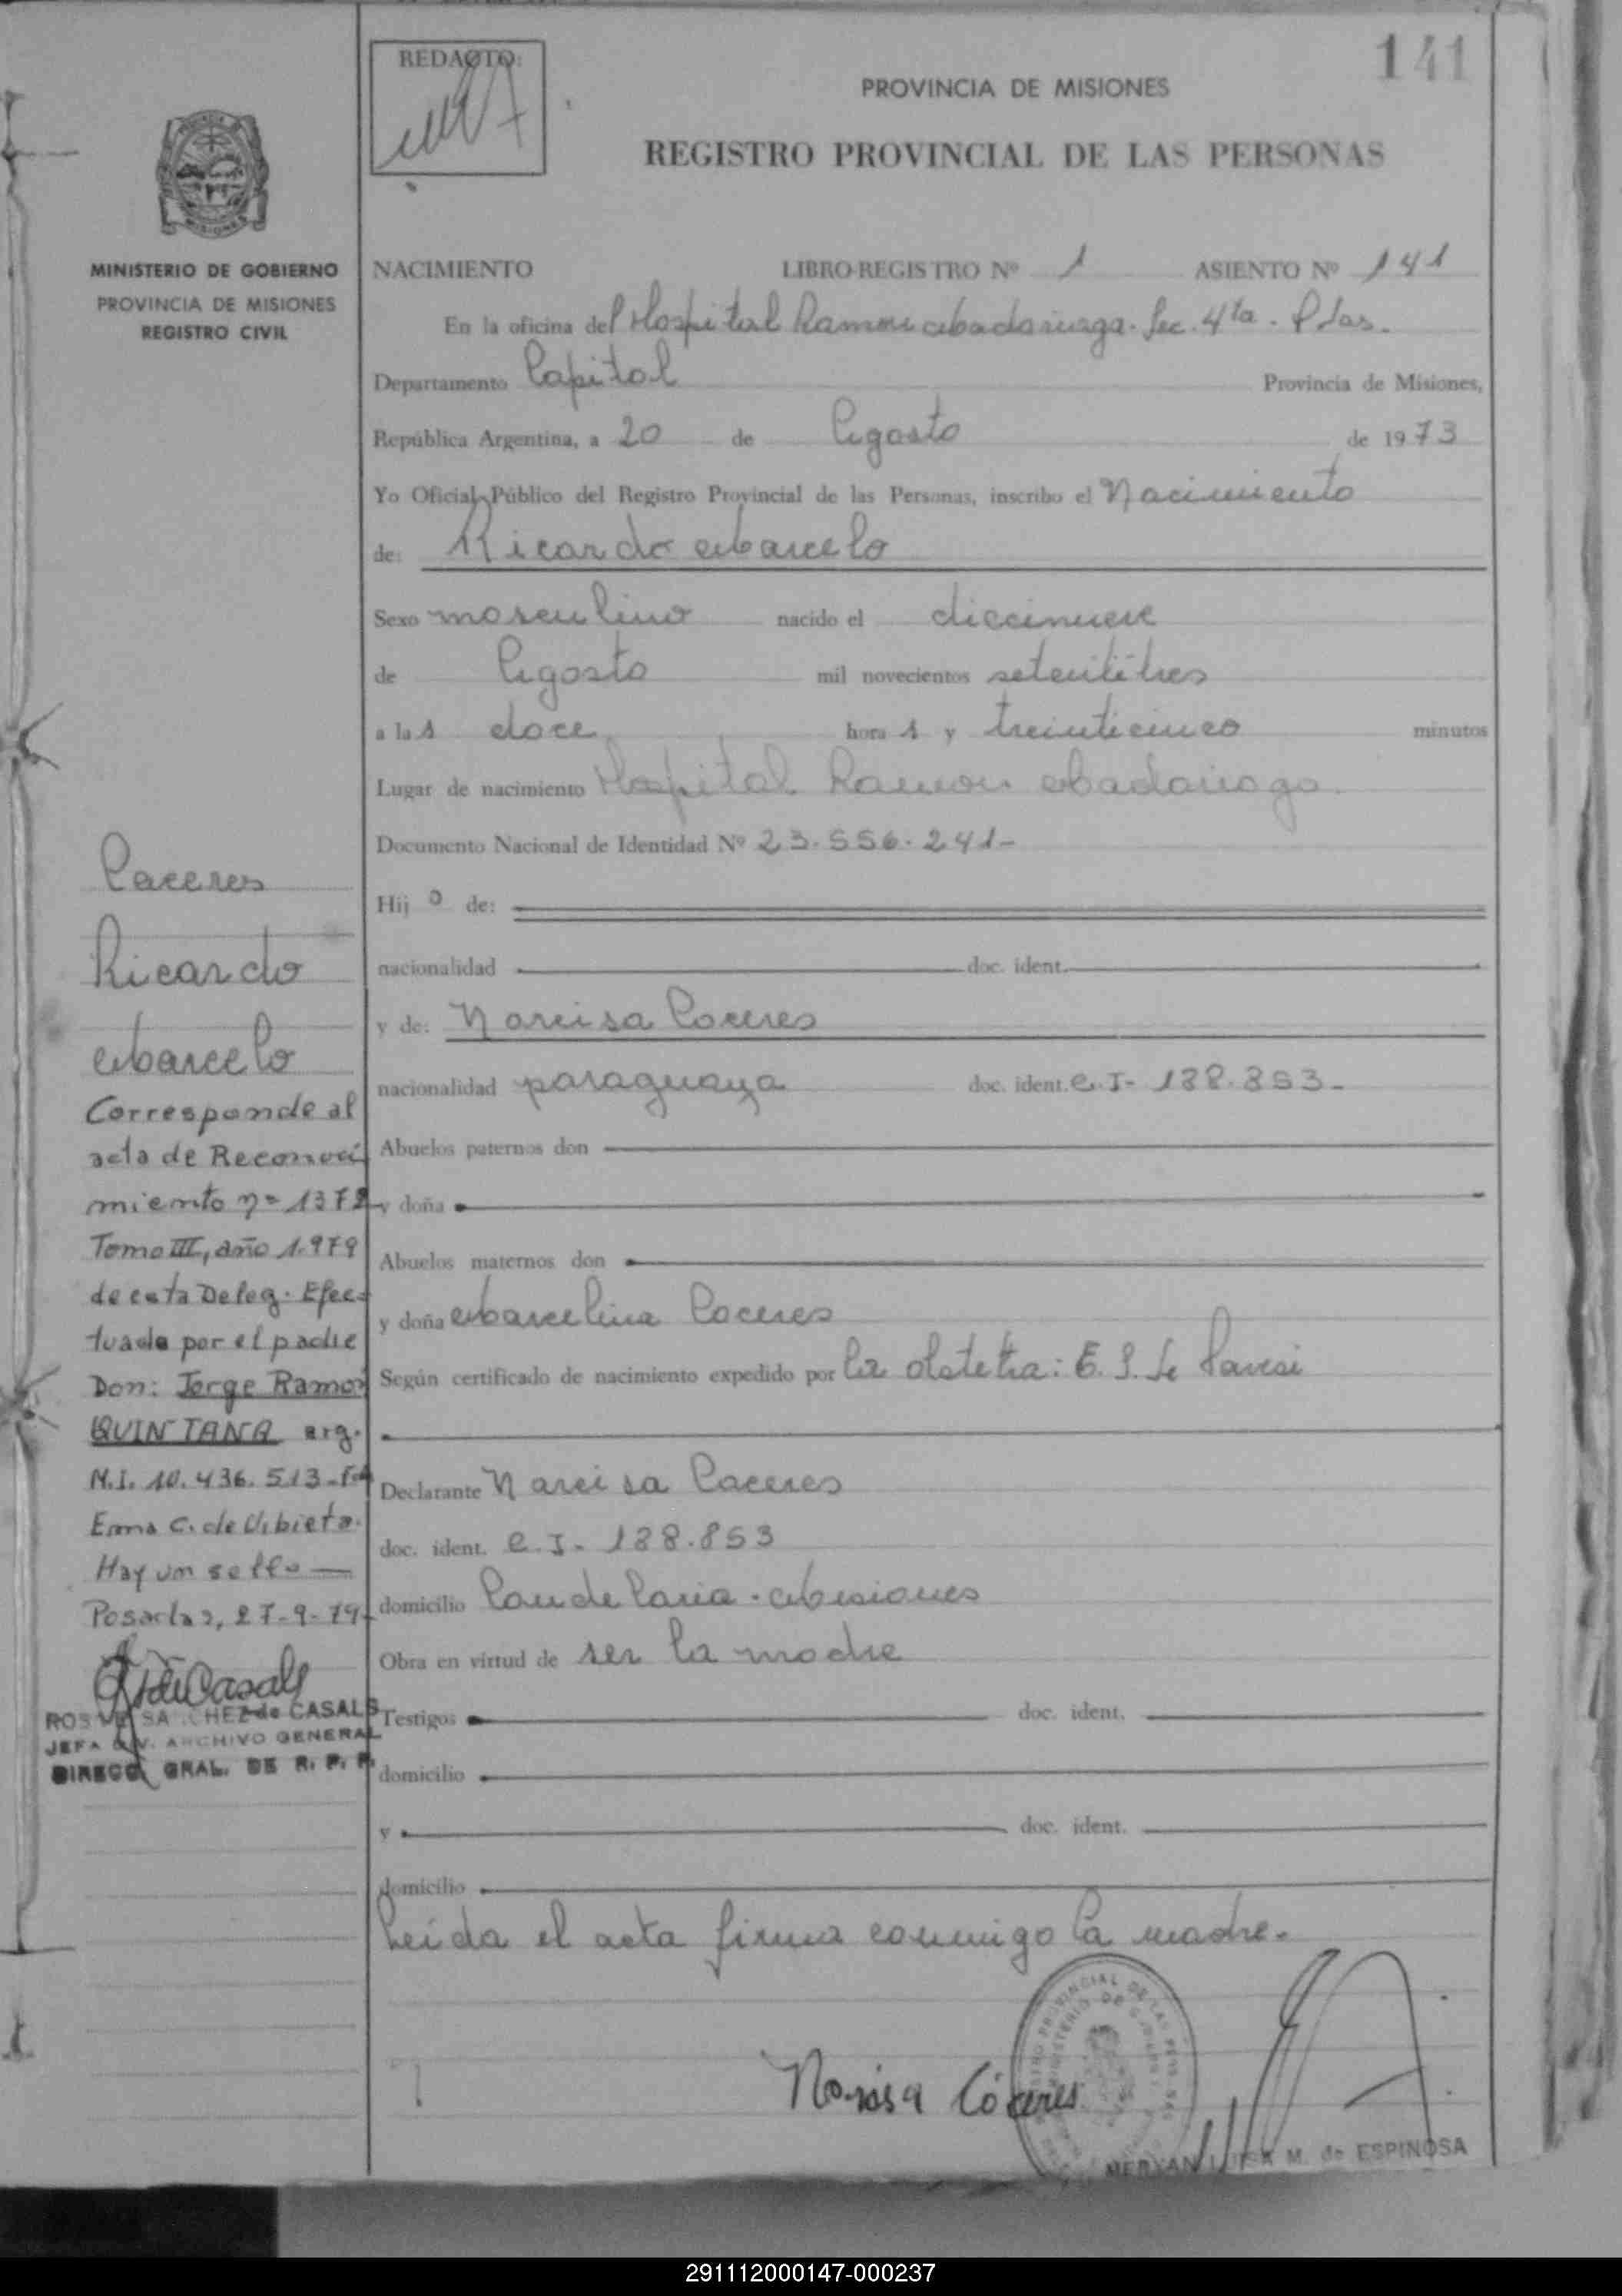 141
REDACTO:
PROVINCIA DE MISIONES
REGISTRO PROVINCIAL DE LAS PERSONAS
MINISTERIO DE GOBIERNO
PROVINCIA DE MISIONES
REGISTRO CIVIL
NACIMIENTO LIBRO-REGISTRO Nº 1 ASIENTO Nº 141
En la oficina del Hospital Ramon Madariaga. Sec. 4ta. Pdas.
Departamento Capital Provincia de Misiones,
República Argentina, a 20 de Agosto de 1973
Yo Oficial Público del Registro Provincial de las Personas, inscribo el Nacimiento
de: Ricardo Marcelo
Sexo masculino nacido el diecinueve
de Agosto mil novecientos setentitres
a las doce horas y treinticinco minutos
Lugar de nacimiento Hospital Ramon Madariaga
Documento Nacional de Identidad Nº 23.556.241-
Hijo de:
nacionalidad doc. ident.
y de: Narcisa Caceres
nacionalidad paraguaya doc. ident. C.I- 188.853-
Abuelos paternos don
y doña
Abuelos maternos don
y doña Marcelina Caceres
Según certificado de nacimiento expedido por la obstetra: E. S. de
Declarante Narcisa Caceres
doc. ident. C.I- 188.853
domicilio Candelaria - Misiones
Obra en virtud de ser la madre
Testigos doc. ident.
domicilio
y doc. ident.
domicilio
Leída el acta firma conmigo la madre.
Narcisa Cáceres
M. de ESPINOSA
Caceres
Ricardo
Marcelo
Corresponde al
acta de Reconoci
miento nº 1372
Tomo III, año 1.979
de esta Deleg. Efec-
tuada por el padre
Don: Jorge Ramon
QUINTANA arg.
M.I. 10.436.513-
Erma C. de Urbieta.
Hay un sello
Posadas, 27-9-79-
SANCHEZ de CASALS
JEFA DIV. ARCHIVO GENERAL
DIRECC. GRAL. DE R. P. P.
291112000147-000237